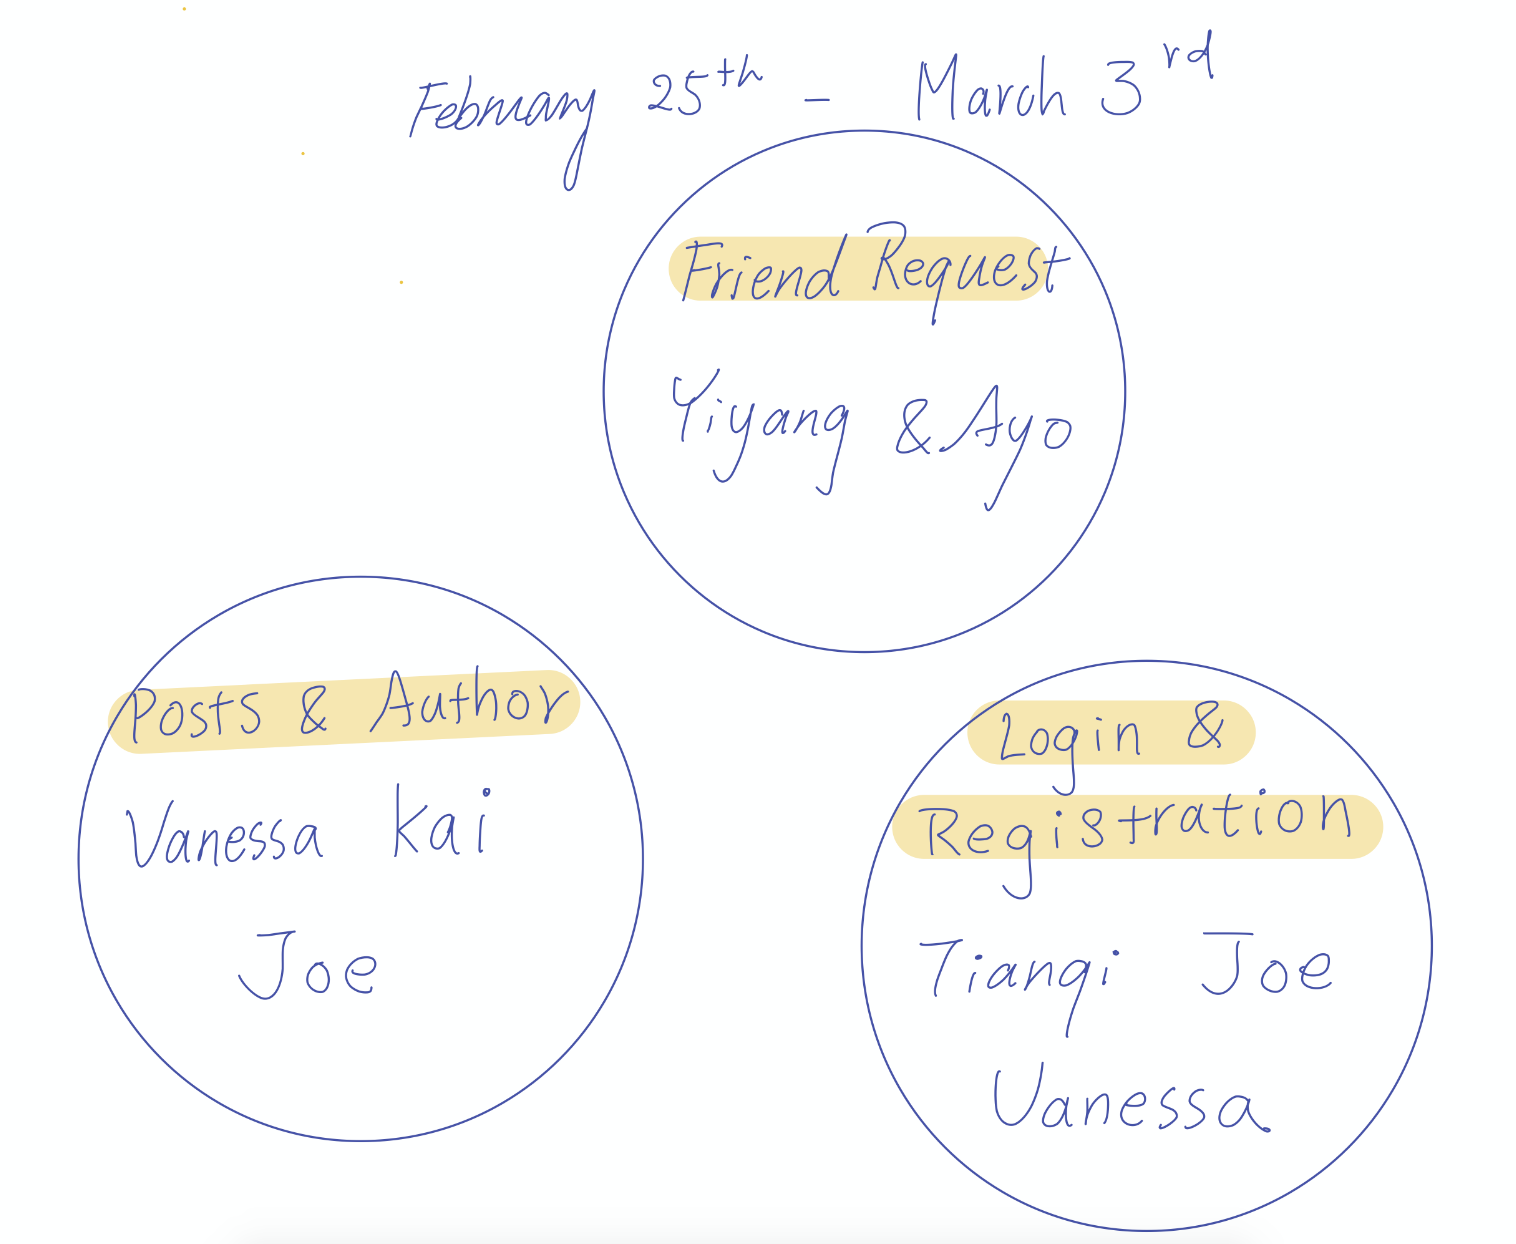 February 25th - March 3rd
Friend Request
Yiyang & Ayo
Posts & Author
Vanessa Kai
Joe
Login &
Registration
Tianqi Joe
Vanessa